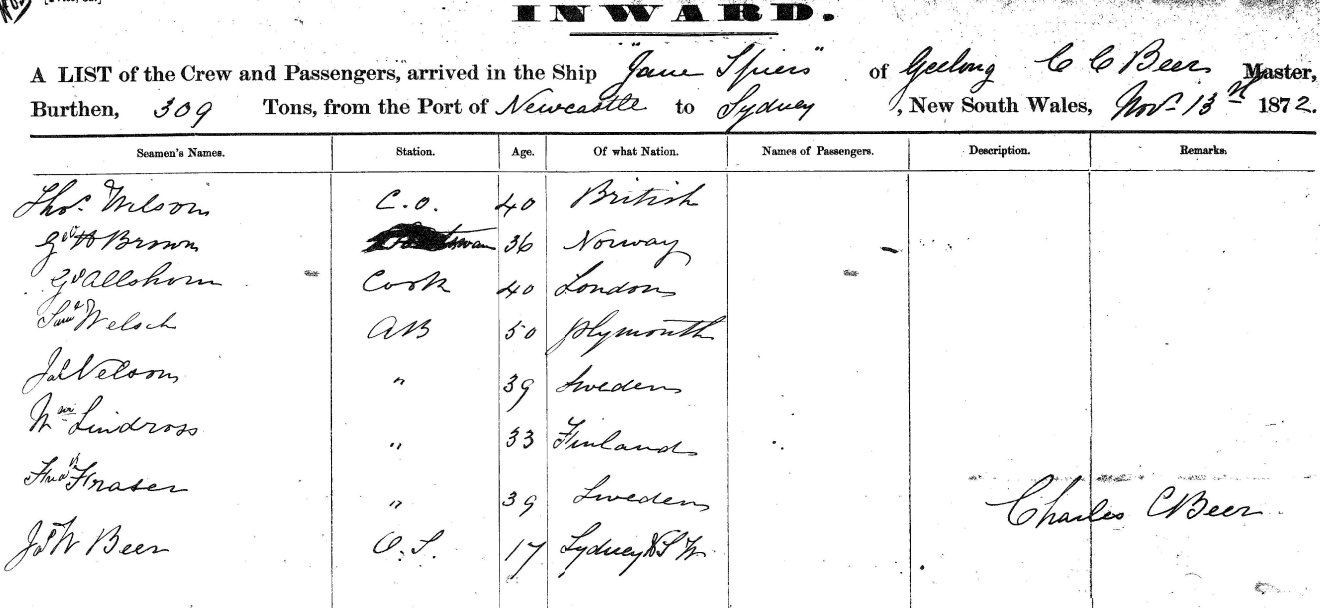 INWARD.
A LIST of the Crew and Passengers, arrived in the Ship "Jane Spiers" of Geelong C C Beer Master,
Burthen, 309 Tons, from the Port of Newcastle to Sydney, New South Wales, Novr 13th 1872.
Seamen's Names. Station. Age. Of what Nation. Names of Passengers. Description. Remarks.
Thos. Wilson C.O. 40 British
Geo H Brown 36 Norway
Go Allshorn Cook 40 London
Saml Welsch AB 50 Plymouth
Jas Nelson " 39 Sweden
Wm Lindross " 33 Finland
Fredk Fraser " 39 Sweden
Charles C Beer
Jas W Beer O.S. 17 Sydney N S W